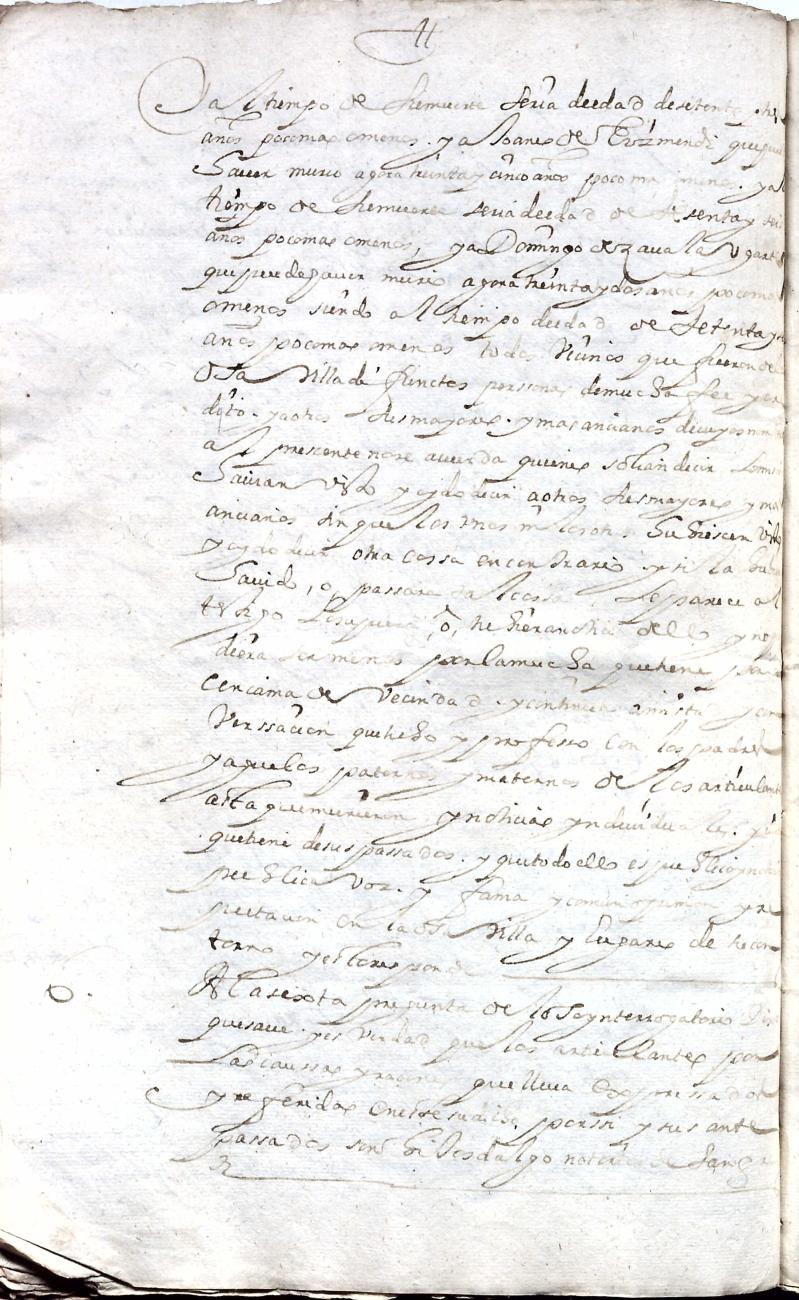 ya l tiempo de su muerte seria de edad de setenta
años poco mas o menos. y a Joanes de Eyzmendi que
hauer murio agora treinta y cinco años poco mas menos. y al
tiempo de su muerte seria de edad de setenta y seis
años poco mas o menos, y a Domingo de zauala Vgarte
que puede hauer murio agora treinta y dos años poco mas
o menos siendo al tiempo de edad de setenta y
años poco mas o menos todos Vecinos que fueron de
dha Villa defunctos personas de mucha fee y cre
dito. y a otros sus mayores. y mas ancianos de cuyos nombres
al presente no se acuerda quienes solian decir
hauian visto y oydo decir a otros sus mayores y mas
ancianos sin que los vnos ni los otros hubiesen visto
y oydo decir otra cossa en contrario y si la hubiera
hauido, o passara tal cossa le parece al
testigo lo supiera, o, tubiera noticia de ello y no pu
diera ser menos por la mucha que tiene
cercania de Vecindad y continua amistad y con
Verssacion que tubo y professo con los padres
y aguelos paternos y maternos de los articulantes
asta que murieron y noticias yndiuiduales
que tiene de sus passados. y que todo ello es publico y notorio
publica voz. y fama y comun opinion y re
putacion en la dha Villa y lugares de su con
torno y esto responde
A la sexta pregunta de lo dho ynterrogatorio Dixo
que saue. y es verdad que los articulantes por
las caussas y raçones que lleua expressadas
y referidas en este su dicho por si y sus ante
passados son hijosdalgo notorios de sangre